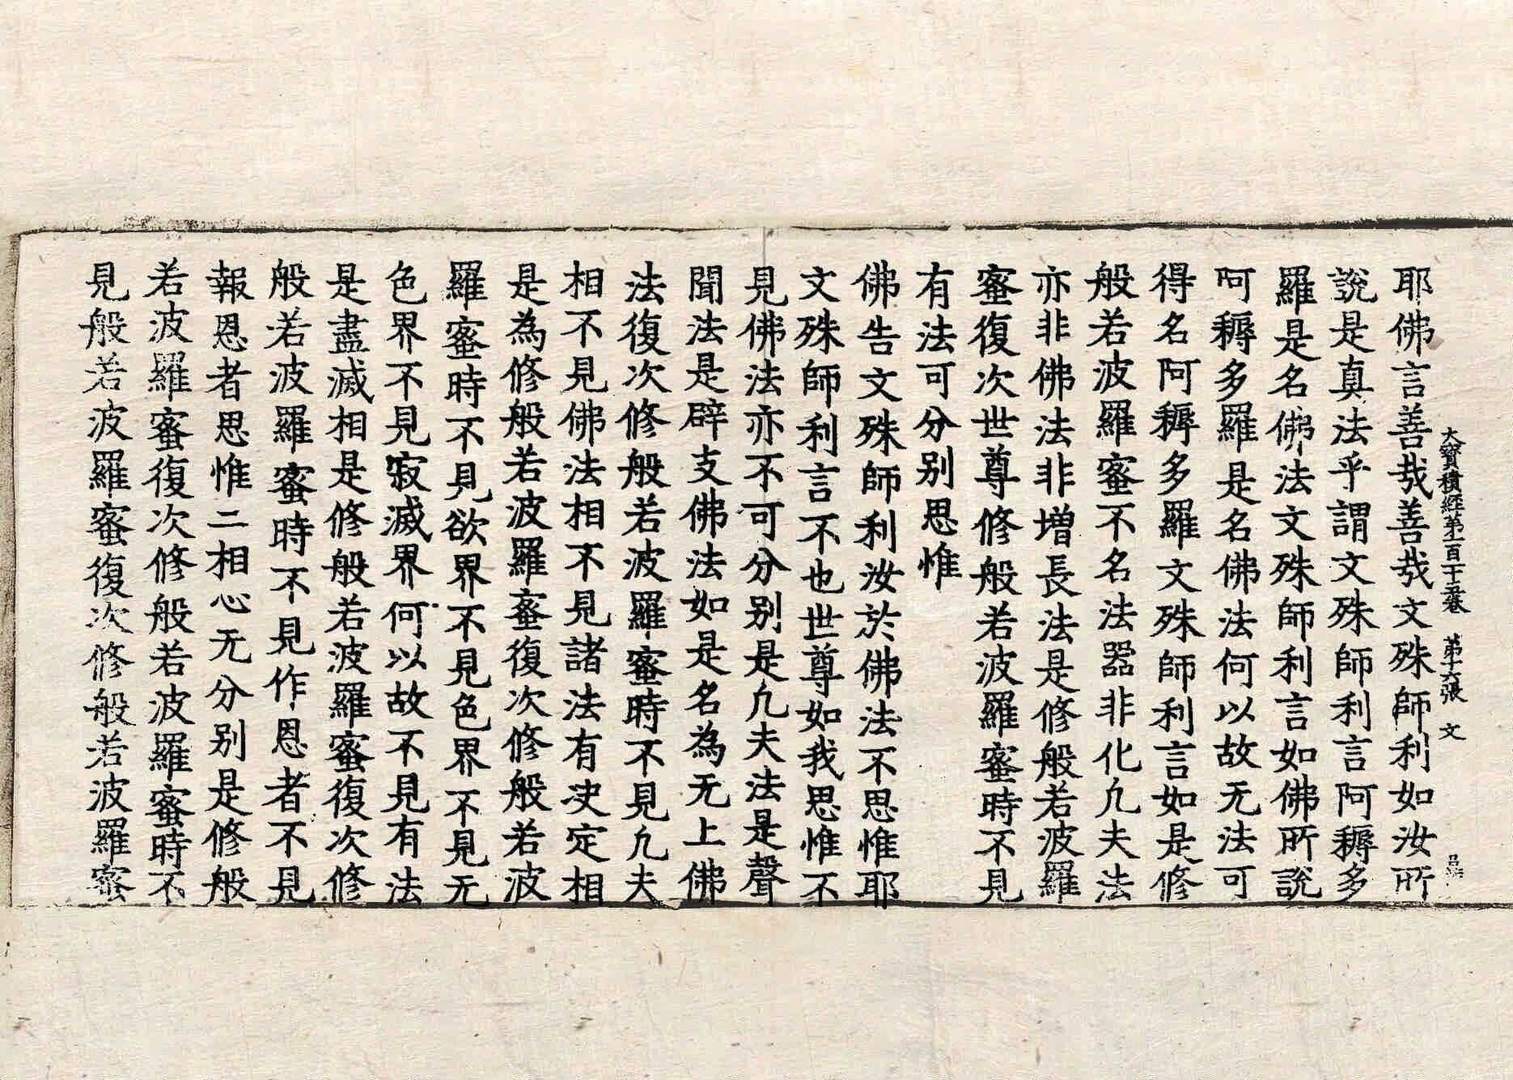 大寳積經第一百十五卷 第十六張 文
耶佛言善哉善哉文殊師利如汝所
說是真法乎謂文殊師利言阿耨多
羅是名佛法文殊師利言如佛所說
阿耨多羅是名佛法何以故无法可
得名阿耨多羅文殊師利言如是修
般若波羅蜜不名法器非化凢夫法
亦非佛法非增長法是修般若波羅
蜜復次世尊修般若波羅蜜時不見
有法可分別思惟
佛告文殊師利汝於佛法不思惟耶
文殊師利言不也世尊如我思惟不
見佛法亦不可分別是凢夫法是聲
聞法是辟支佛法如是名為无上佛
法復次修般若波羅蜜時不見凢夫
相不見佛法相不見諸法有決定相
是為修般若波羅蜜復次修般若波
羅蜜時不見欲界不見色界不見无
色界不見寂滅界何以故不見有法
是盡滅相是修般若波羅蜜復次修
般若波羅蜜時不見作恩者不見
報恩者思惟二相心无分別是修般
若波羅蜜復次修般若波羅蜜時不
見般若波羅蜜復次修般若波羅蜜